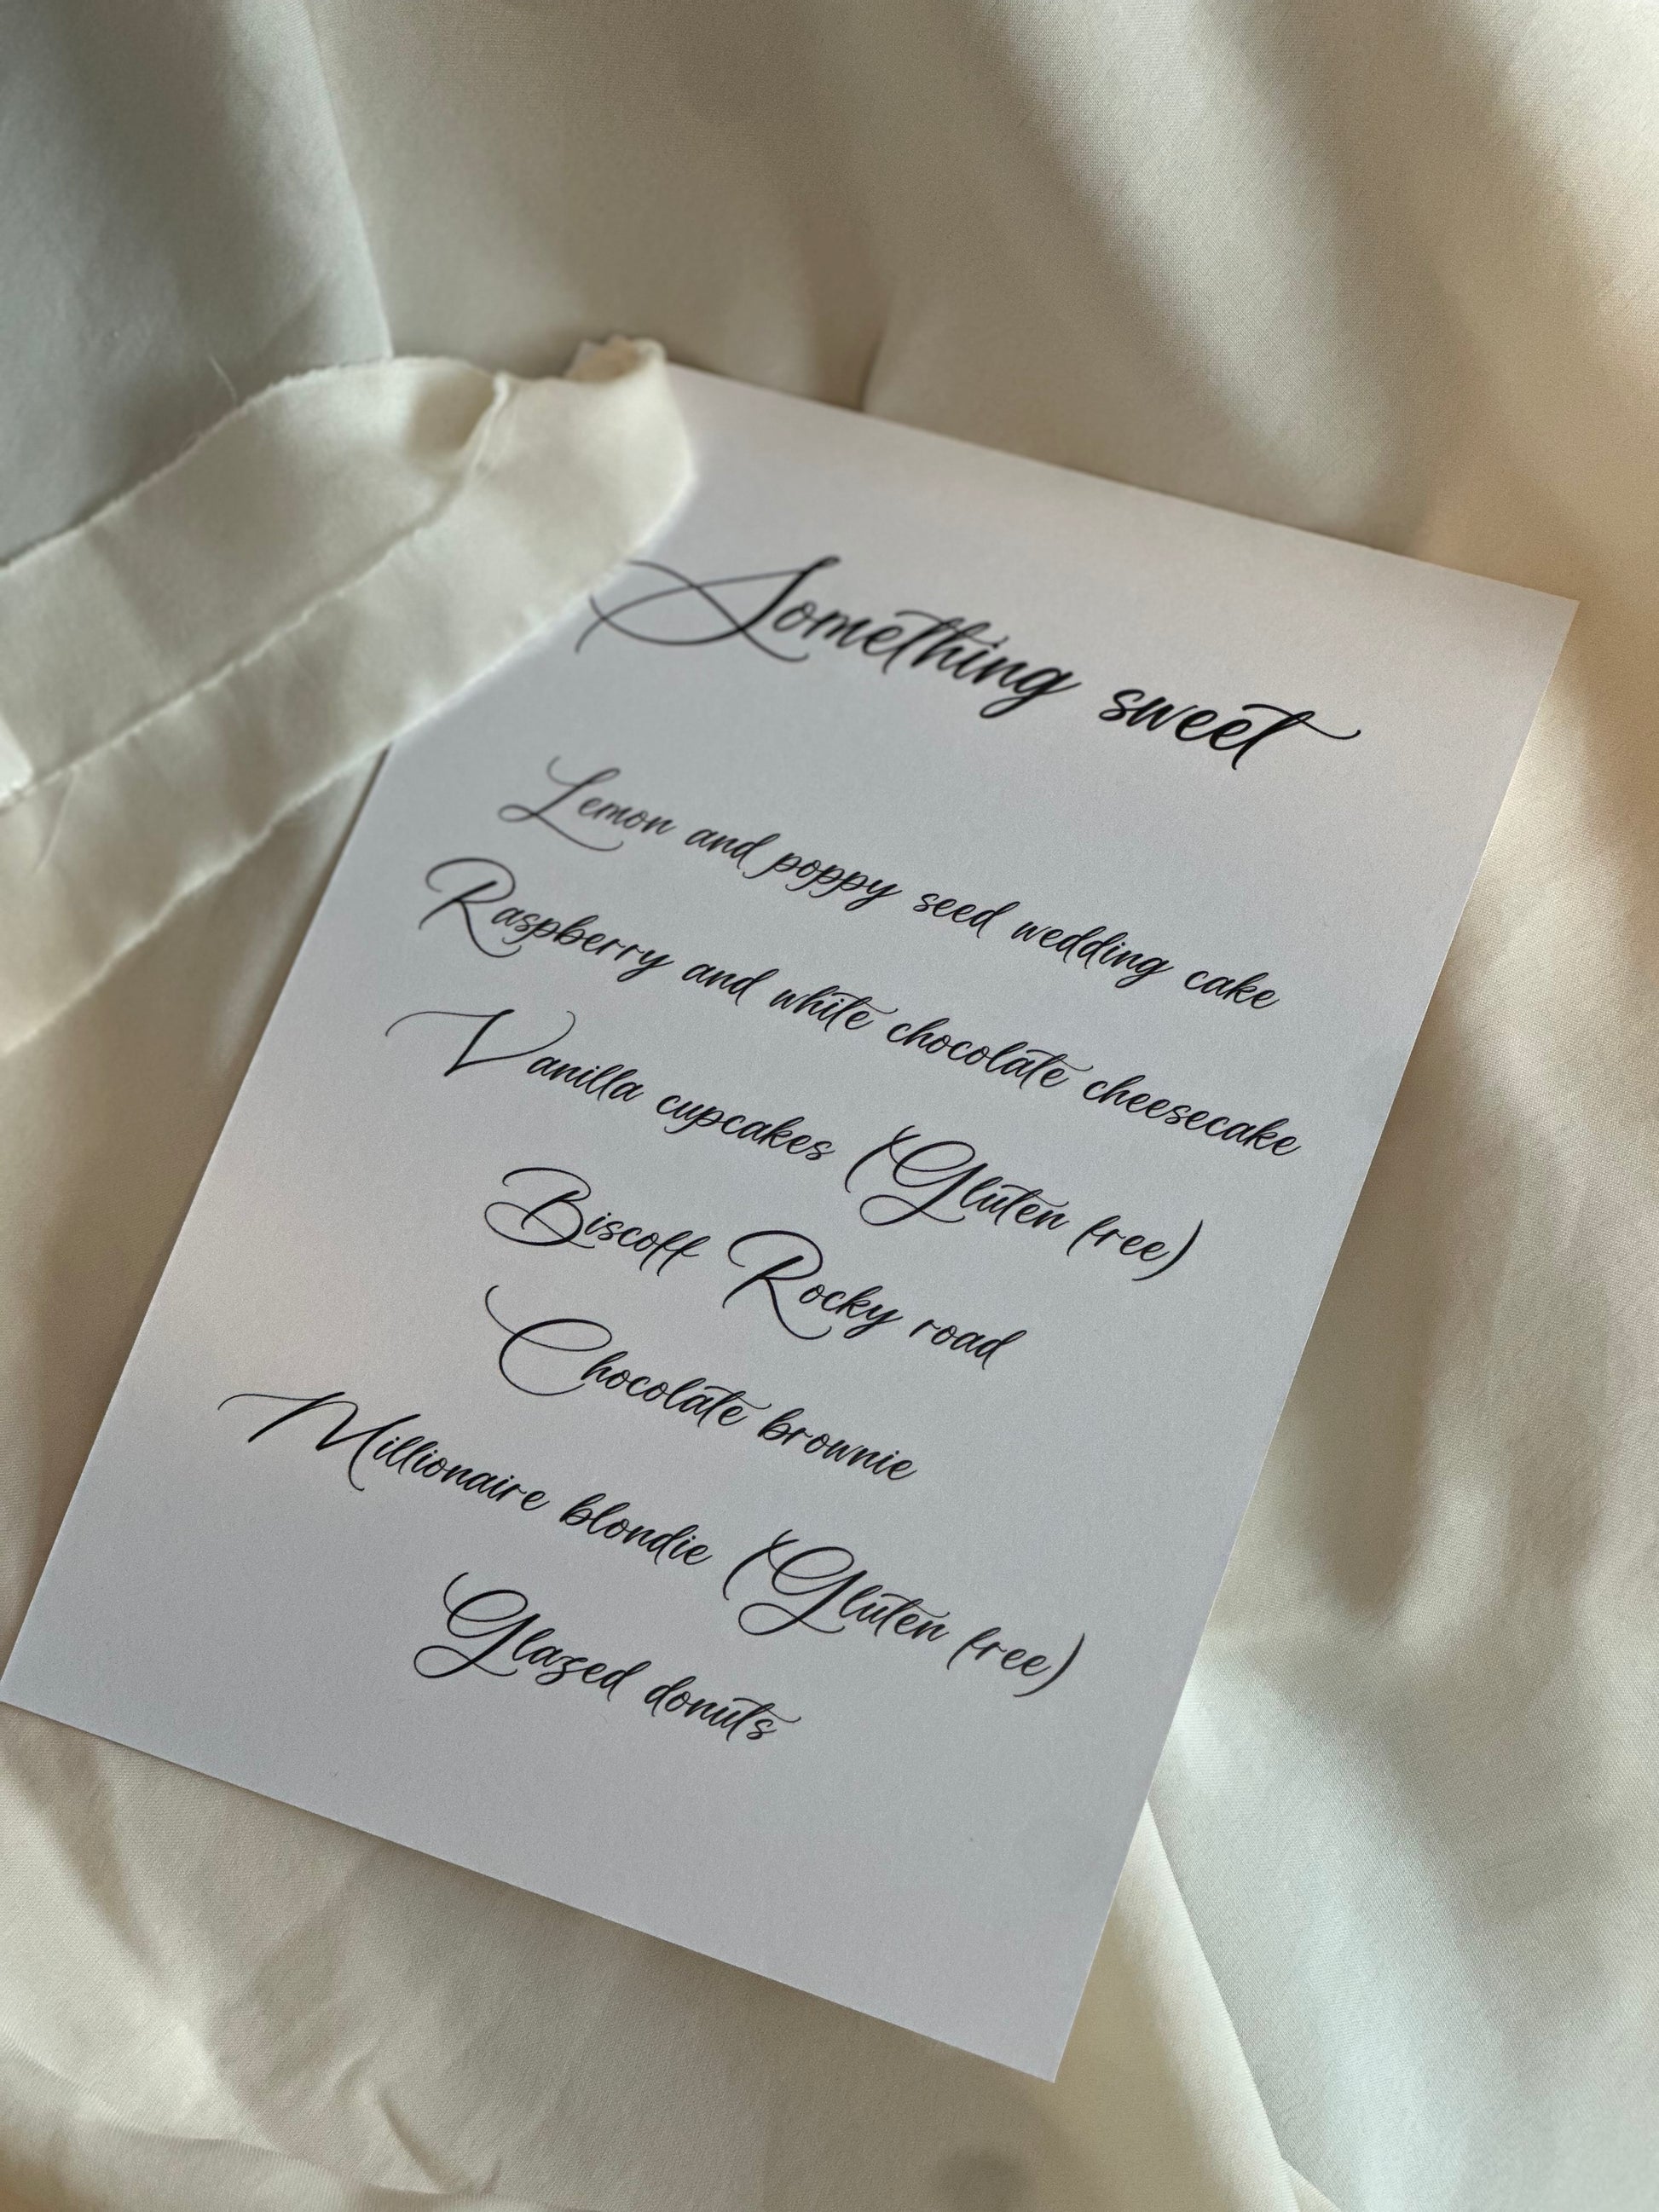 Something sweet
Lemon and poppy seed wedding cake
Raspberry and white chocolate cheesecake
Vanilla cupcakes (Gluten free)
Biscoff Rocky road
Chocolate brownie
Millionaire blondie (Gluten free)
Glazed donuts